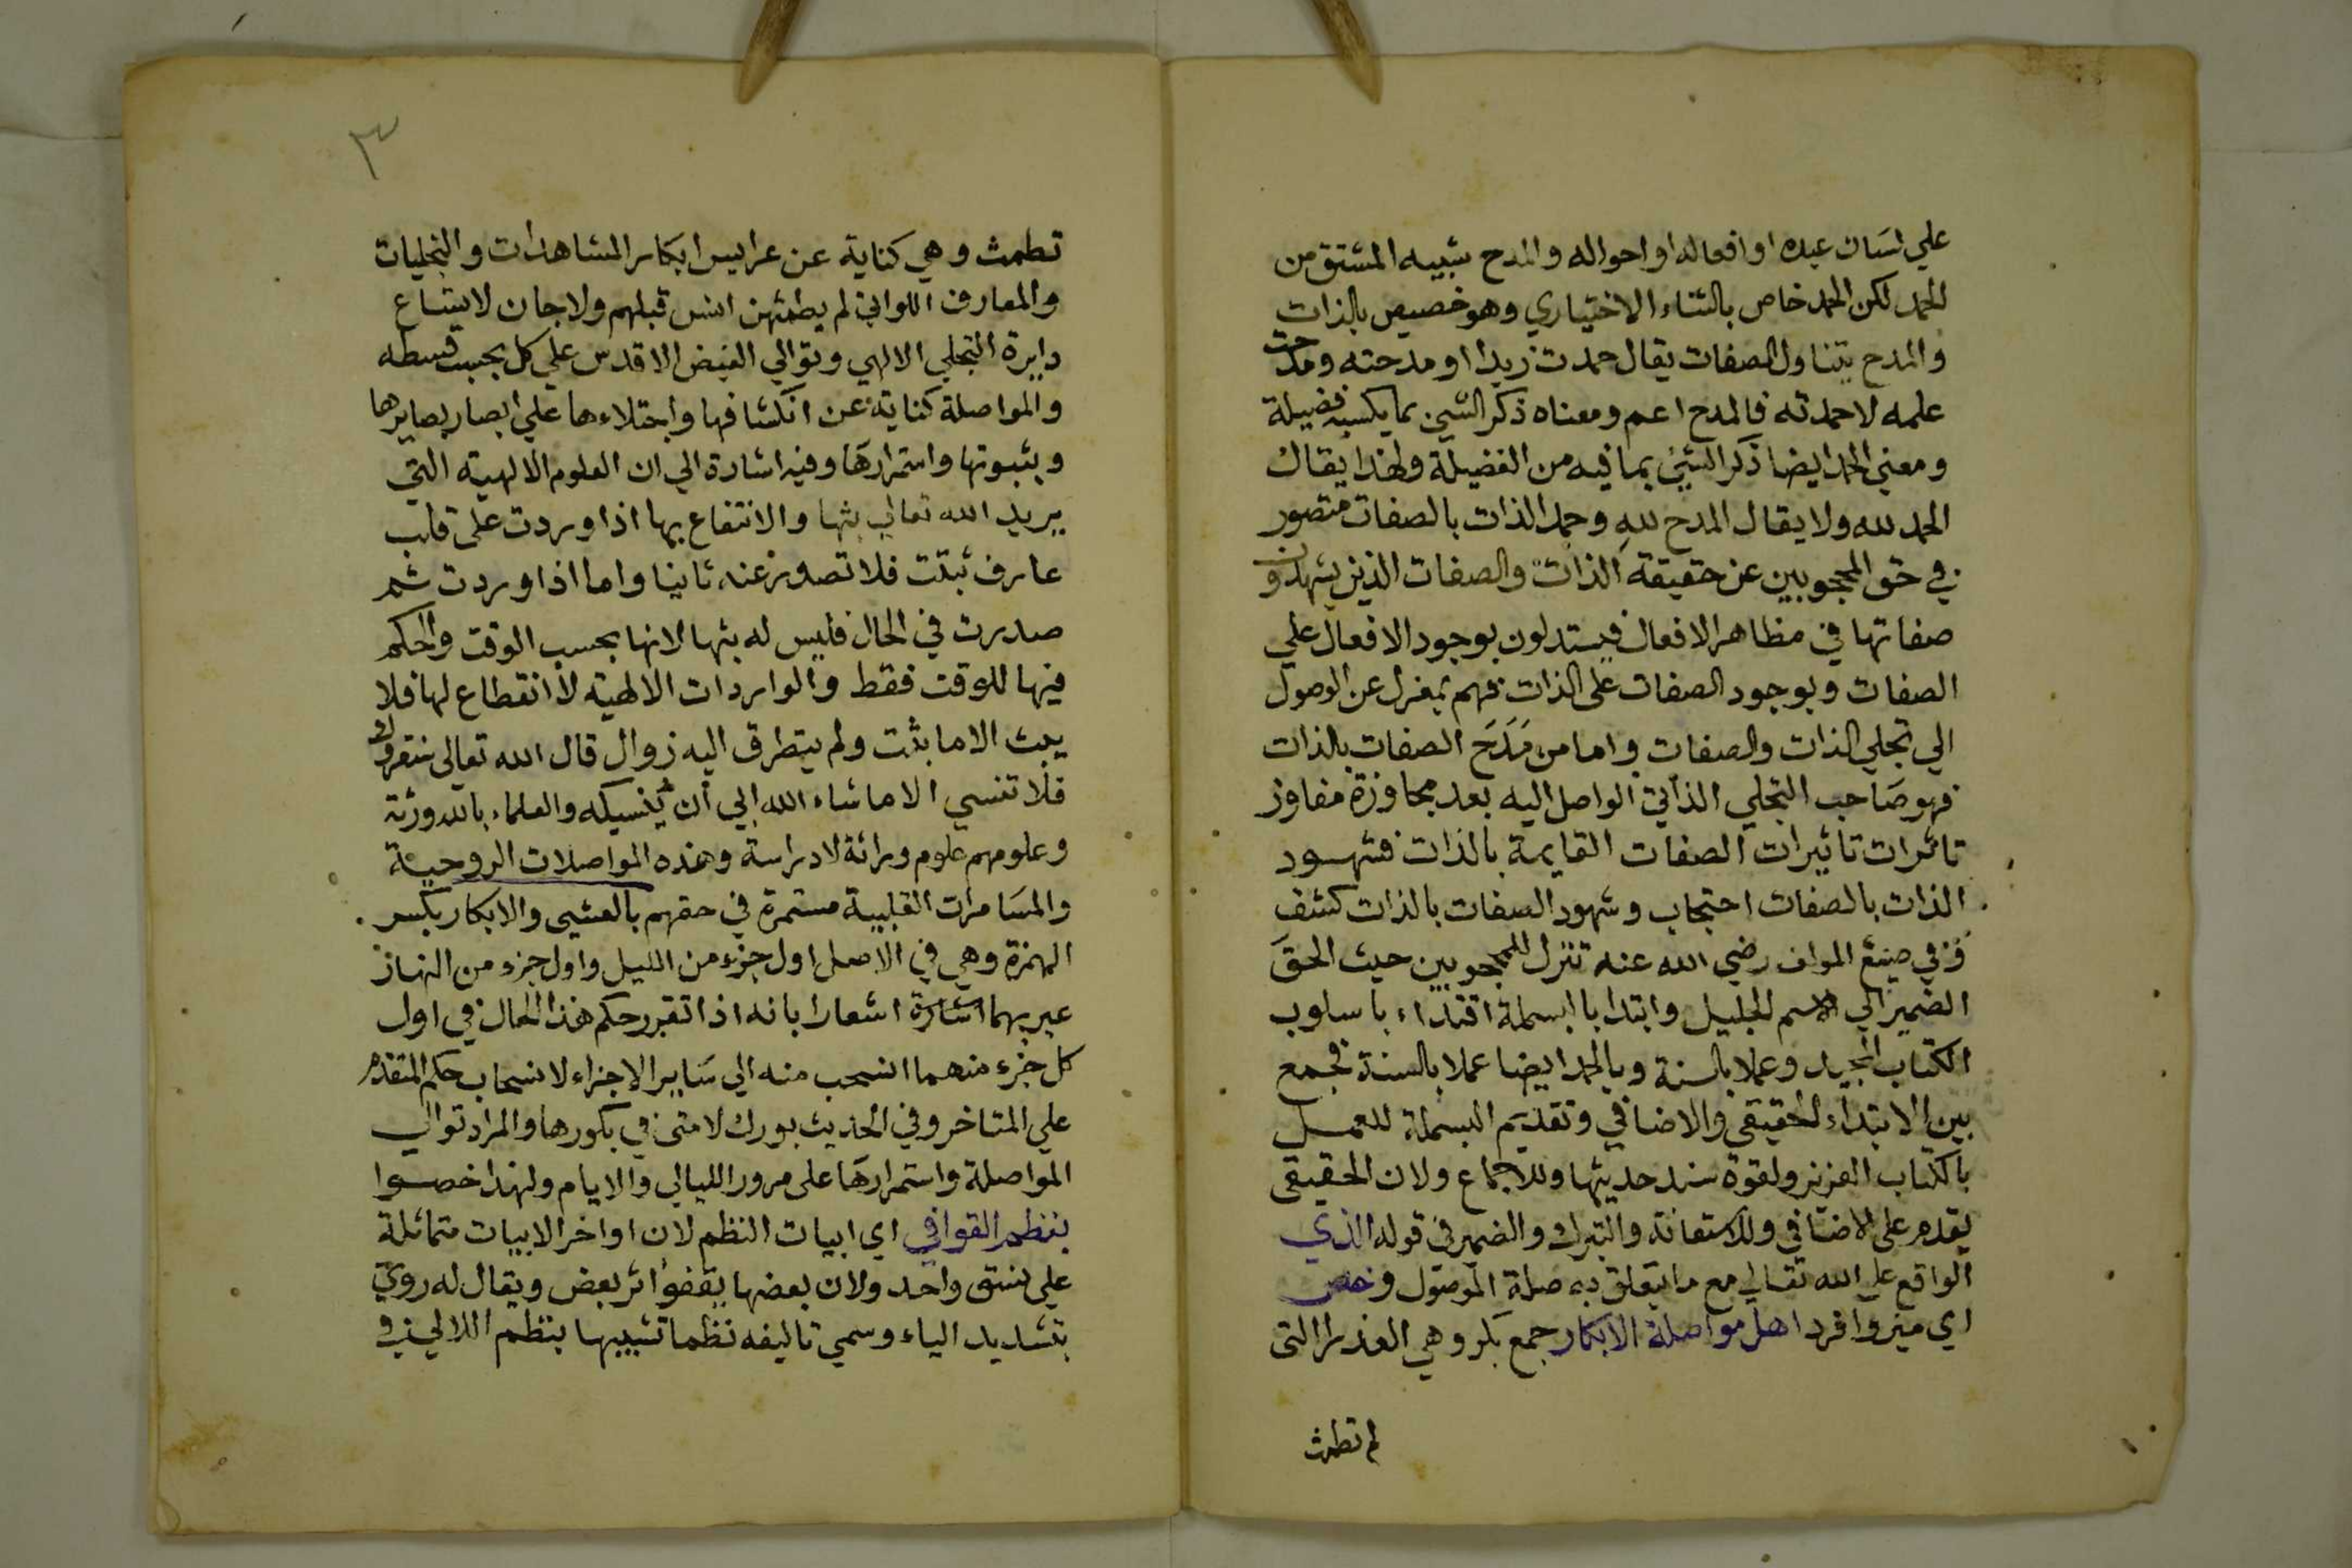 علي لسان عبده او افعاله او احواله والمدح شبيه المشتق من
الحمد لكن الحمد خاص بالثناء الاختياري وهو خصيص بالذات
والمدح يتناول الصفات يقال حمدت زيدا او مدحته ومدحت
علمه لا حمدته فالمدح اعم ومعناه ذكر الشي بما يكسبه فضيلة
ومعني الحمد ايضا ذكر الشي بما فيه من الفضيلة ولهذا يقال
الحمد لله ولا يقال المدح لله وحمد الذات بالصفات متصور
في حق المحجوبين عن حقيقة الذات والصفات الذين يشهدون
صفاتها في مظاهر الافعال فيستدلون بوجود الافعال علي
الصفات وبوجود الصفات على الذات فهم بمعزل عن الوصول
الي تجلي الذات والصفات واما من مَدَحَ الصفات بالذات
فهو صاحب التجلي الذاتي الواصل اليه بعد مجاوزة مفاوز
تاثرات تاثيرات الصفات القايمة بالذات فشهود
الذات بالصفات احتجاب وشهود الصفات بالذات كشف
ففي صنع المولف رضي الله عنه تنزل للمحجوبين حيث الحق
الضمير الي الاسم الجليل وابتدا بالبسملة اقتداء باسلوب
الكتاب المجيد وعملا بالسنة وبالحمد ايضا عملا بالسنة فجمع
بين الابتداء الحقيقي والاضافي وتقديم البسملة للعمل
بالكتاب العزيز ولقوة سند حديثها وللاجماع ولان الحقيقي
يقدم على الاضافي وللاستعانة والتبرك والضمير في قوله الذي
الواقع علي الله تعالي مع ما يتعلق به صلة الموصول وخص
اي ميز وافرد اهل مواصلة الابكار جمع بكر وهي العذرا التي
لم تطمث
٣
تطمث وهي كناية عن عرايس ابكار المشاهدات والتجليات
والمعارف اللواتي لم يطمثهن انس قبلهم ولا جان لاتساع
دايرة التجلي الالهي وتوالي الفيض الاقدس علي كل بحسب قسطه
والمواصلة كناية عن انكشافها واجتلاءها علي ابصار بصايرها
وبثبوتها واستمرارها وفيه اشارة الي ان العلوم الالهية التي
يريد الله تعالي بثها والانتفاع بها اذا وردت على قلب
عارف ثبتت فلا تصدر عنه ثانيا واما اذا وردت ثم
صدرت في الحال فليس له بثها لانها بحسب الوقت والحكم
فيها للوقت فقط والواردات الالهية لا انقطاع لها فلا
يبث الا ما ثبت ولم يتطرق اليه زوال قال الله تعالى سنقرؤك
فلا تنسي الا ما شاء الله الي أن ينسيكه والعلماء بالله ورثة
وعلومهم علوم وراثة لا دراسة وهذه المواصلات الروحية
والمسامرات القلبية مستمرة في حقهم بالعشي والابكار بكسر
الهمزة وهي في الاصل اول جزء من الليل واول جزء من النهار
عبر بهما اشارة اشعارا بانه اذا تقرر حكم هذا الحال في اول
كل جزء منهما انسحب منه الي ساير الاجزاء لانسحاب حكم المتقدم
علي المتاخر وفي الحديث بورك لامتي في بكورها والمراد توالي
المواصلة واستمرارها على مرور الليالي والايام ولهذا خصوا
بنظم القوافي اي ابيات النظم لان اواخر الابيات متماثلة
علي نسق واحد ولان بعضها يقفوا اثر بعض ويقال له رويّ
بتشديد الياء وسمي تاليفه نظما تشبيها بنظم اللالي في